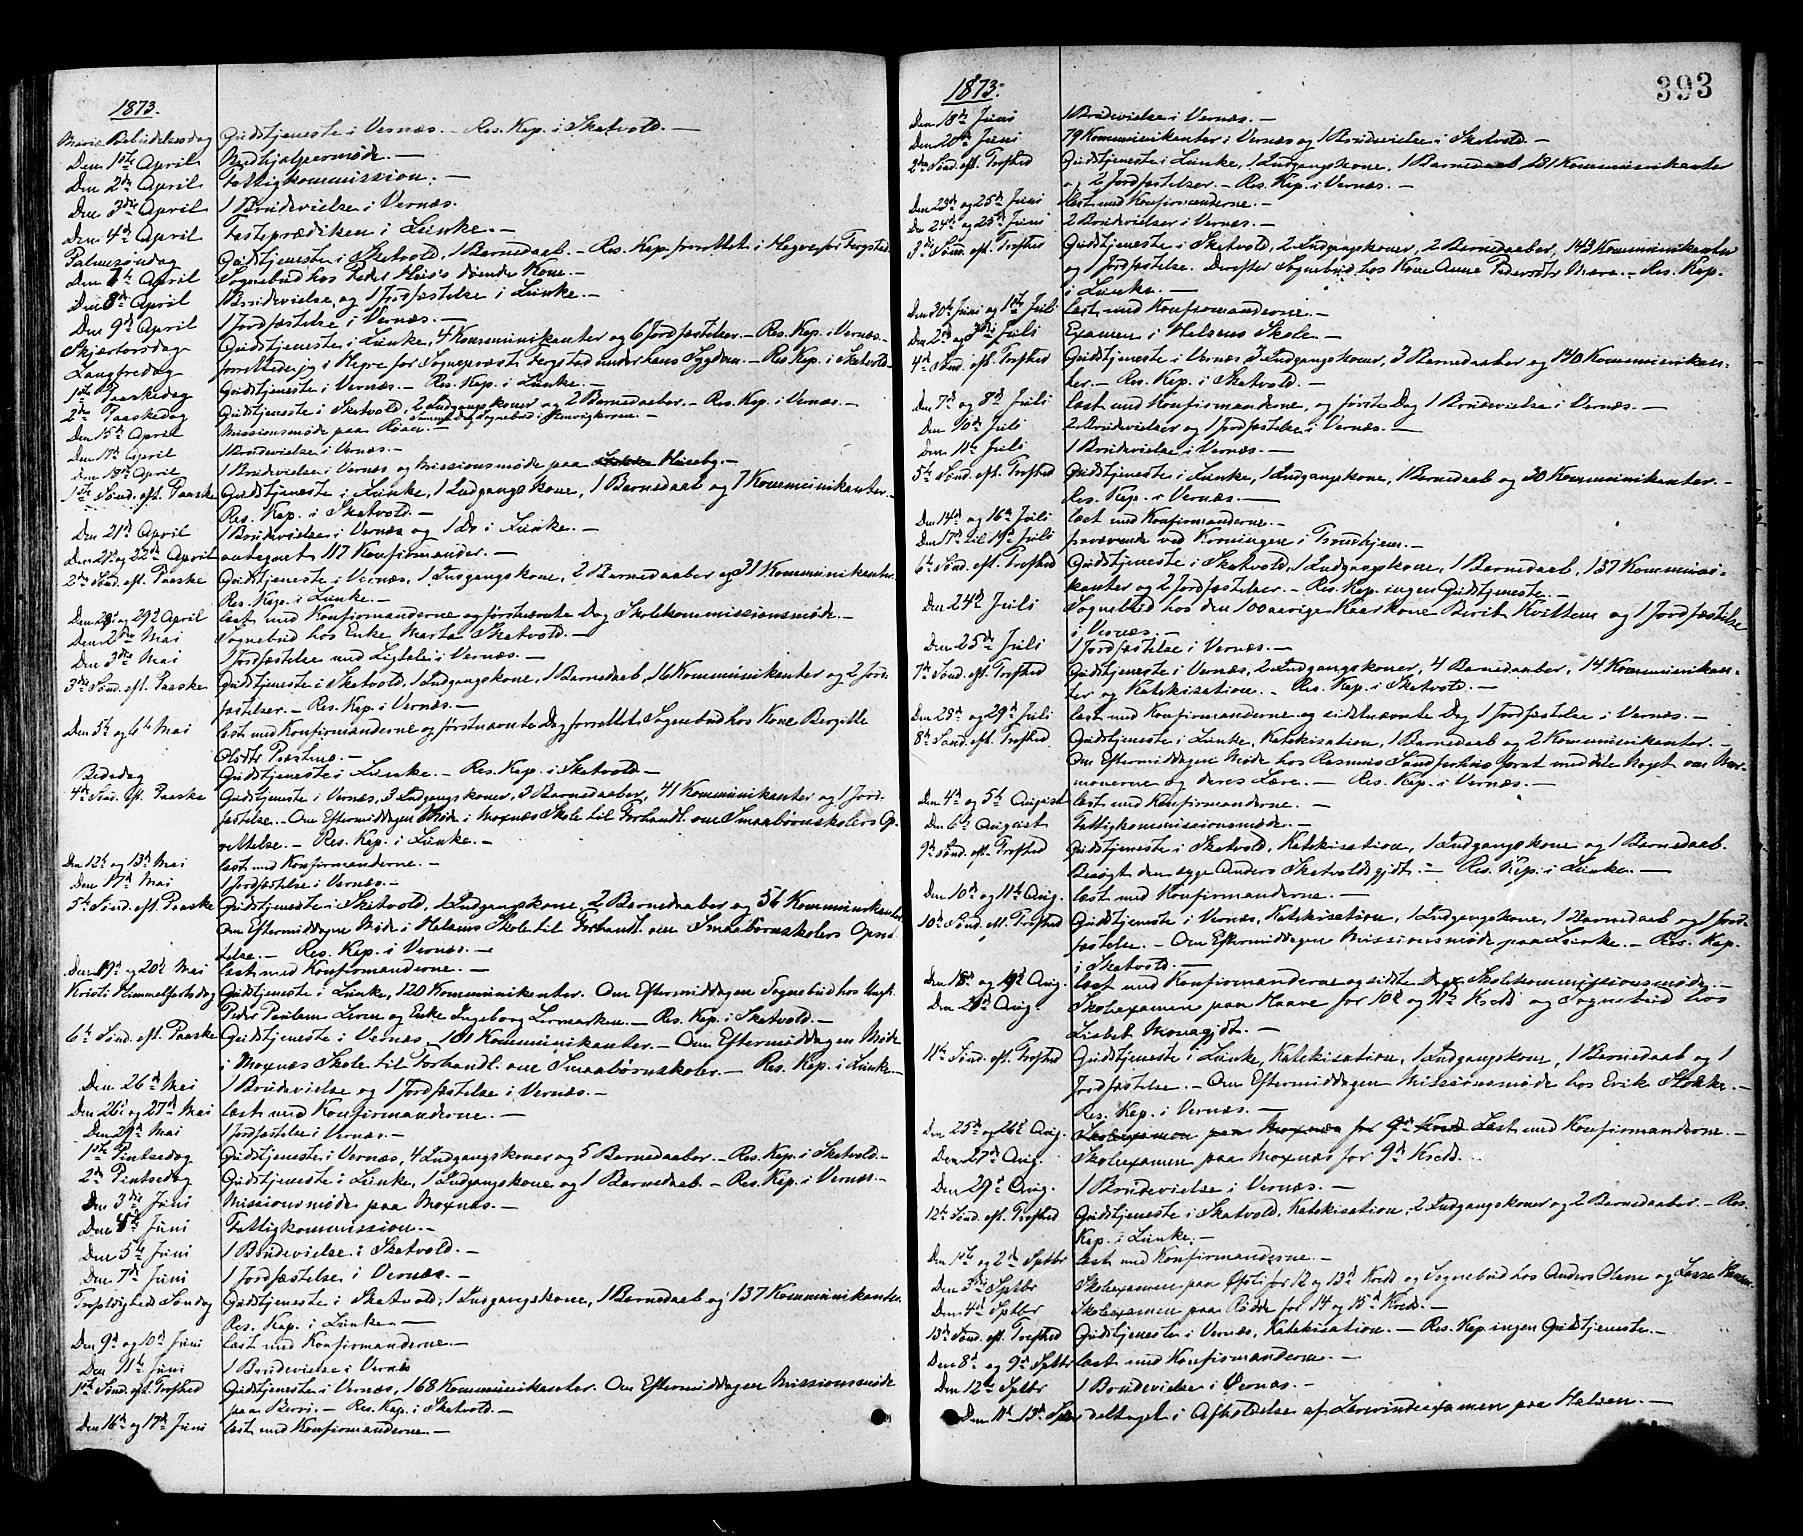 1873.
Mariæ Bebudelsesdag Gudstjeneste i Vernæs. — Res. Kap. i Skatvold. —
Den 1ste April Medhjælpermøde. —
Den 2den April Fattigkommission. —
Den 3die April 1 Brudevielse i Vernæs.
Den 4de April Fasteprædiken i Lånke. —
Palmesøndag Gudstjeneste i Skatvold, 1 Barnedaab. — Res. Kap. forrettet i Hegre for Fergstad.
Den 7de April Sognebud hos Peder døende Kone. —
Den 8de April 1 Brudevielse og 1 Jordfæstelse i Lånke. —
Den 9de April 1 Jordfæstelse i Vernæs. —
Skjærtorsdag Gudstjeneste i Lånke, 4 Kommunikanter og 6 Jordfæstelser. — Res. Kap. i Vernæs. —
Langfredag forrettede jeg i Hegre for Sogneprest Fergstad under hans Sygdom. — Res. Kap. i Skatvold —
1ste Paaskedag Gudstjeneste i Vernæs. — Res. Kap. i Lånke. —
2den Paaskedag Gudstjeneste i Skatvold, 2 Indgangskoner og 2 Barnedaaber. — Res. Kap. i Vernæs. —
Den 15de April Missionsmøde paa Røkke. — Samme Dag Sognebud i —
Den 17de April 1 Brudevielse i Vernæs. —
Den 18de April 1 Brudevielse i Vernæs og Missionsmøde paa Huseby. —
1ste Sønd. eft. Paaske Gudstjeneste i Lånke, 1 Indgangskone, 1 Barnedaab og 7 Kommunikanter. —
Res. Kap. i Skatvold. —
Den 21de April 1 Brudevielse i Vernæs og 1 Do i Lånke. —
Den 21de og 22de April antegnet 117 Konfirmander. —
2den Sønd. eft. Paaske Gudstjeneste i Vernæs, 1 Indgangskone, 2 Barnedaaber og 31 Kommunikanter.
Res. Kap. i Lånke. —
Den 28de og 29de April læst med Konfirmanderne og førstnævnte Dag Skolekommissionsmøde. —
Den 2den Mai Sognebud hos Enke Marta Skatvold. —
Den 3die Mai 1 Jordfæstelse med Ligtale i Vernæs. —
3die Sønd. eft. Paaske Gudstjeneste i Skatvold, 1 Indgangskone, 1 Barnedaab, 16 Kommunikanter og 2 Jord-
fæstelser. — Res. Kap. i Vernæs. —
Den 5te og 6te Mai læst med Konfirmanderne og førstnævnte Dag forrettet Sognebud hos Kone Bergitte
Olsdtr —
Bededag Gudstjeneste i Lånke. — Res. Kap. i Skatvold —
4de Sønd. eft. Paaske Gudstjeneste i Vernæs, 3 Indgangskoner, 3 Barnedaaber, 41 Kommunikanter og 1 Jord-
fæstelse. — Om Eftermiddagen Møde i Moxnæs Skole til Forhandl. om Smaabørnskolers Op-
rettelse. — Res. Kap. i Lånke. —
Den 12te og 13de Mai læst med Konfirmanderne. —
Den 17de Mai 1 Jordfæstelse i Vernæs. —
5te Sønd. eft. Paaske Gudstjeneste i Skatvold, 1 Indgangskone, 2 Barnedaaber og 56 Kommunikanter.
Om Eftermiddagen Møde i Halsens Skole til Forhandl. om Smaabørnskolers Opret-
telse. — Res. Kap. i Vernæs. —
Den 19de og 20de Mai læst med Konfirmanderne. —
Kristi Himmelfartsdag Gudstjeneste i Lånke, 120 Kommunikanter. Om Eftermiddagen Sognebud hos Ungk.
Peder Paulsen og Enke Ingeborg. — Res. Kap. i Skatvold. —
6te Sønd. eft. Paaske Gudstjeneste i Vernæs, 101 Kommunikanter. — Om Eftermiddagen Møde
i Moxnæs Skole til Forhandl. om Smaabørnskoler. — Res. Kap. i Lånke. —
Den 26de Mai 1 Brudevielse og 1 Jordfæstelse i Vernæs. —
Den 26de og 27de Mai læst med Konfirmanderne. —
Den 29de Mai 1 Jordfæstelse i Vernæs. —
1ste Pintsedag Gudstjeneste i Vernæs, 4 Indgangskoner og 5 Barnedaaber. — Res. Kap. i Skatvold. —
2den Pintsedag Gudstjeneste i Lånke, 1 Indgangskone og 1 Barnedaab. — Res. Kap. i Vernæs. —
Den 3die Juni Missionsmøde paa Moxnæs. —
Den 4de Juni Fattigkommission. —
Den 5te Juni 1 Brudevielse i Skatvold. —
Den 7de Juni 1 Jordfæstelse i Vernæs. —
Trefoldigheds Søndag Gudstjeneste i Skatvold, 1 Indgangskone, 1 Barnedaab og 137 Kommunikanter.
Res. Kap. i Lånke. —
Den 9de og 10de Juni læst med Konfirmanderne. —
Den 11te Juni 1 Brudevielse i Vernæs
1ste Sønd. eft. Trefhed Gudstjeneste i Vernæs, 168 Kommunikanter. Om Eftermiddagen Missionsmøde
paa — Res. Kap. i Skatvold. —
Den 16de og 17de Juni læst med Konfirmanderne. —
393
1873.
Den 18de Juni 1 Brudevielse i Vernæs. —
Den 20de Juni 79 Kommunikanter i Vernæs og 1 Brudevielse i Skatvold. —
2den Sønd. eft. Trefhed Gudstjeneste i Lånke, 1 Indgangskone, 1 Barnedaab 181 Kommunikanter
og 2 Jordfæstelser. — Res. Kap. i Vernæs. —
Den 23de og 25de Juni læst med Konfirmanderne. —
Den 24de og 25de Juni 2 Brudevielser i Vernæs. —
3die Sønd. eft. Trefhed Gudstjeneste i Skatvold, 2 Indgangskoner, 2 Barnedaaber, 143 Kommunikanter
og 1 Jordfæstelse. Derefter Sognebud hos Kone Anne Pedersdtr Mære. — Res. Kap.
i Lånke. —
Den 30te Juni og 1ste Juli læst med Konfirmanderne. —
Den 2den og 3die Juli Examen i Halsens Skole. —
4de Sønd. eft. Trefhed Gudstjeneste i Vernæs 3 Indgangskoner, 3 Barnedaaber og 140 Kommunikan-
ter. — Res. Kap. i Skatvold. —
Den 7de og 8de Juli læst med Konfirmanderne, og første Dag 1 Brudevielse i Vernæs. —
Den 10de Juli 2 Brudevielser og 1 Jordfæstelse i Vernæs. —
Den 11te Juli 1 Brudevielse i Vernæs. —
5te Sønd. eft. Trefhed Gudstjeneste i Lånke, 1 Indgangskone, 1 Barnedaab og 30 Kommunikanter. —
Res. Kap. i Vernæs. —
Den 14de og 16de Juli læst med Konfirmanderne. —
Den 17de til 19de Juli fraværende ved Kroningen i Trondhjem. —
6te Sønd. eft. Trefhed Gudstjeneste i Skatvold, 1 Indgangskone, 1 Barnedaab, 137 Kommuni-
kanter og 2 Jordfæstelser. — Res. Kap. ingen Gudstjeneste. —
Den 24de Juli Sognebud hos den 100aarige Kaarkone Berit Kvittem og 1 Jordfæstelse
i Vernæs. —
Den 25de Juli 1 Jordfæstelse i Vernæs. —
7de Sønd. eft. Trefhed Gudstjeneste i Vernæs, 2 Indgangskoner, 4 Barnedaaber, 14 Kommunikan-
ter og Katekisation. — Res. Kap. i Skatvold. —
Den 28de og 29de Juli læst med Konfirmanderne og sidstnævnte Dag 1 Jordfæstelse i Vernæs. —
8de Sønd. eft. Trefhed Gudstjeneste i Lånke, Katekisation, 1 Barnedaab og 2 Kommunikanter. —
Om Eftermiddagen Møde hos Rasmus Sandferhus for at meddele Noget om Mor-
monerne og deres Lære. — Res. Kap. i Vernæs. —
Den 4de og 5te August læst med Konfirmanderne. —
Den 6te August Fattigkommissionsmøde. —
9de Sønd. eft. Trefhed Gudstjeneste i Skatvold, Katekisation, 1 Indgangskone og 1 Barnedaab.
Besøgt den syge Anders Skatvoldsgjdt. — Res. Kap. i Lånke. —
Den 10de og 11te Aug. læst med Konfirmanderne. —
10de Sønd. eft. Trefhed Gudstjeneste i Vernæs, Katekisation, 1 Indgangskone, 1 Barnedaab og 1 Jord-
fæstelse. — Om Eftermiddagen Missionsmøde paa Lånke. — Res. Kap.
i Skatvold. —
Den 18de og 19de Aug. læst med Konfirmanderne og sidste Dag Skolekommissionsmøde. —
Den 20de Aug. Skolexamen paa Haave for 10de og 11te Kreds og Sognebud hos
Lisbet Monagjdt. —
11te Sønd. eft. Trefhed Gudstjeneste i Lånke, Katekisation, 1 Indgangskone, 1 Barnedaab og 1
Jordfæstelse. — Om Eftermiddagen Missionsmøde hos Erik Stokke. —
Res. Kap. i Vernæs. —
Den 25de og 26de Aug. Skolexamen paa Moxnæs for 9de Kreds Læst med Konfirmanderne. —
Den 27de Aug. Skolexamen paa Moxnæs for 9de Kreds. —
Den 29de Aug. 1 Brudevielse i Vernæs. —
12te Sønd. eft. Trefhed Gudstjeneste i Skatvold, Katekisation, 2 Indgangskoner og 2 Barnedaaber. — Res.
Kap. i Lånke. —
Den 1ste og 2den Sptbr læst med Konfirmanderne. —
Den 3die Sptbr Skolexamen paa for 12 og 13de Kreds og Sognebud hos Anders Olsen og Lasse Hansen.
Den 4de Sptbr Skolexamen paa Rødde for 14 og 15de Kreds. —
13de Sønd. eft. Trefhed Gudstjeneste i Vernæs, Katekisation. — Res. Kap. ingen Gudstjeneste. —
Den 8de og 9de Sptbr læst med Konfirmanderne. —
Den 12te Sptbr 1 Brudevielse i Vernæs. —
Den 11te 13de Sptbr deltaget i Afholdelse af Lærerindeexamen paa Halsen. —